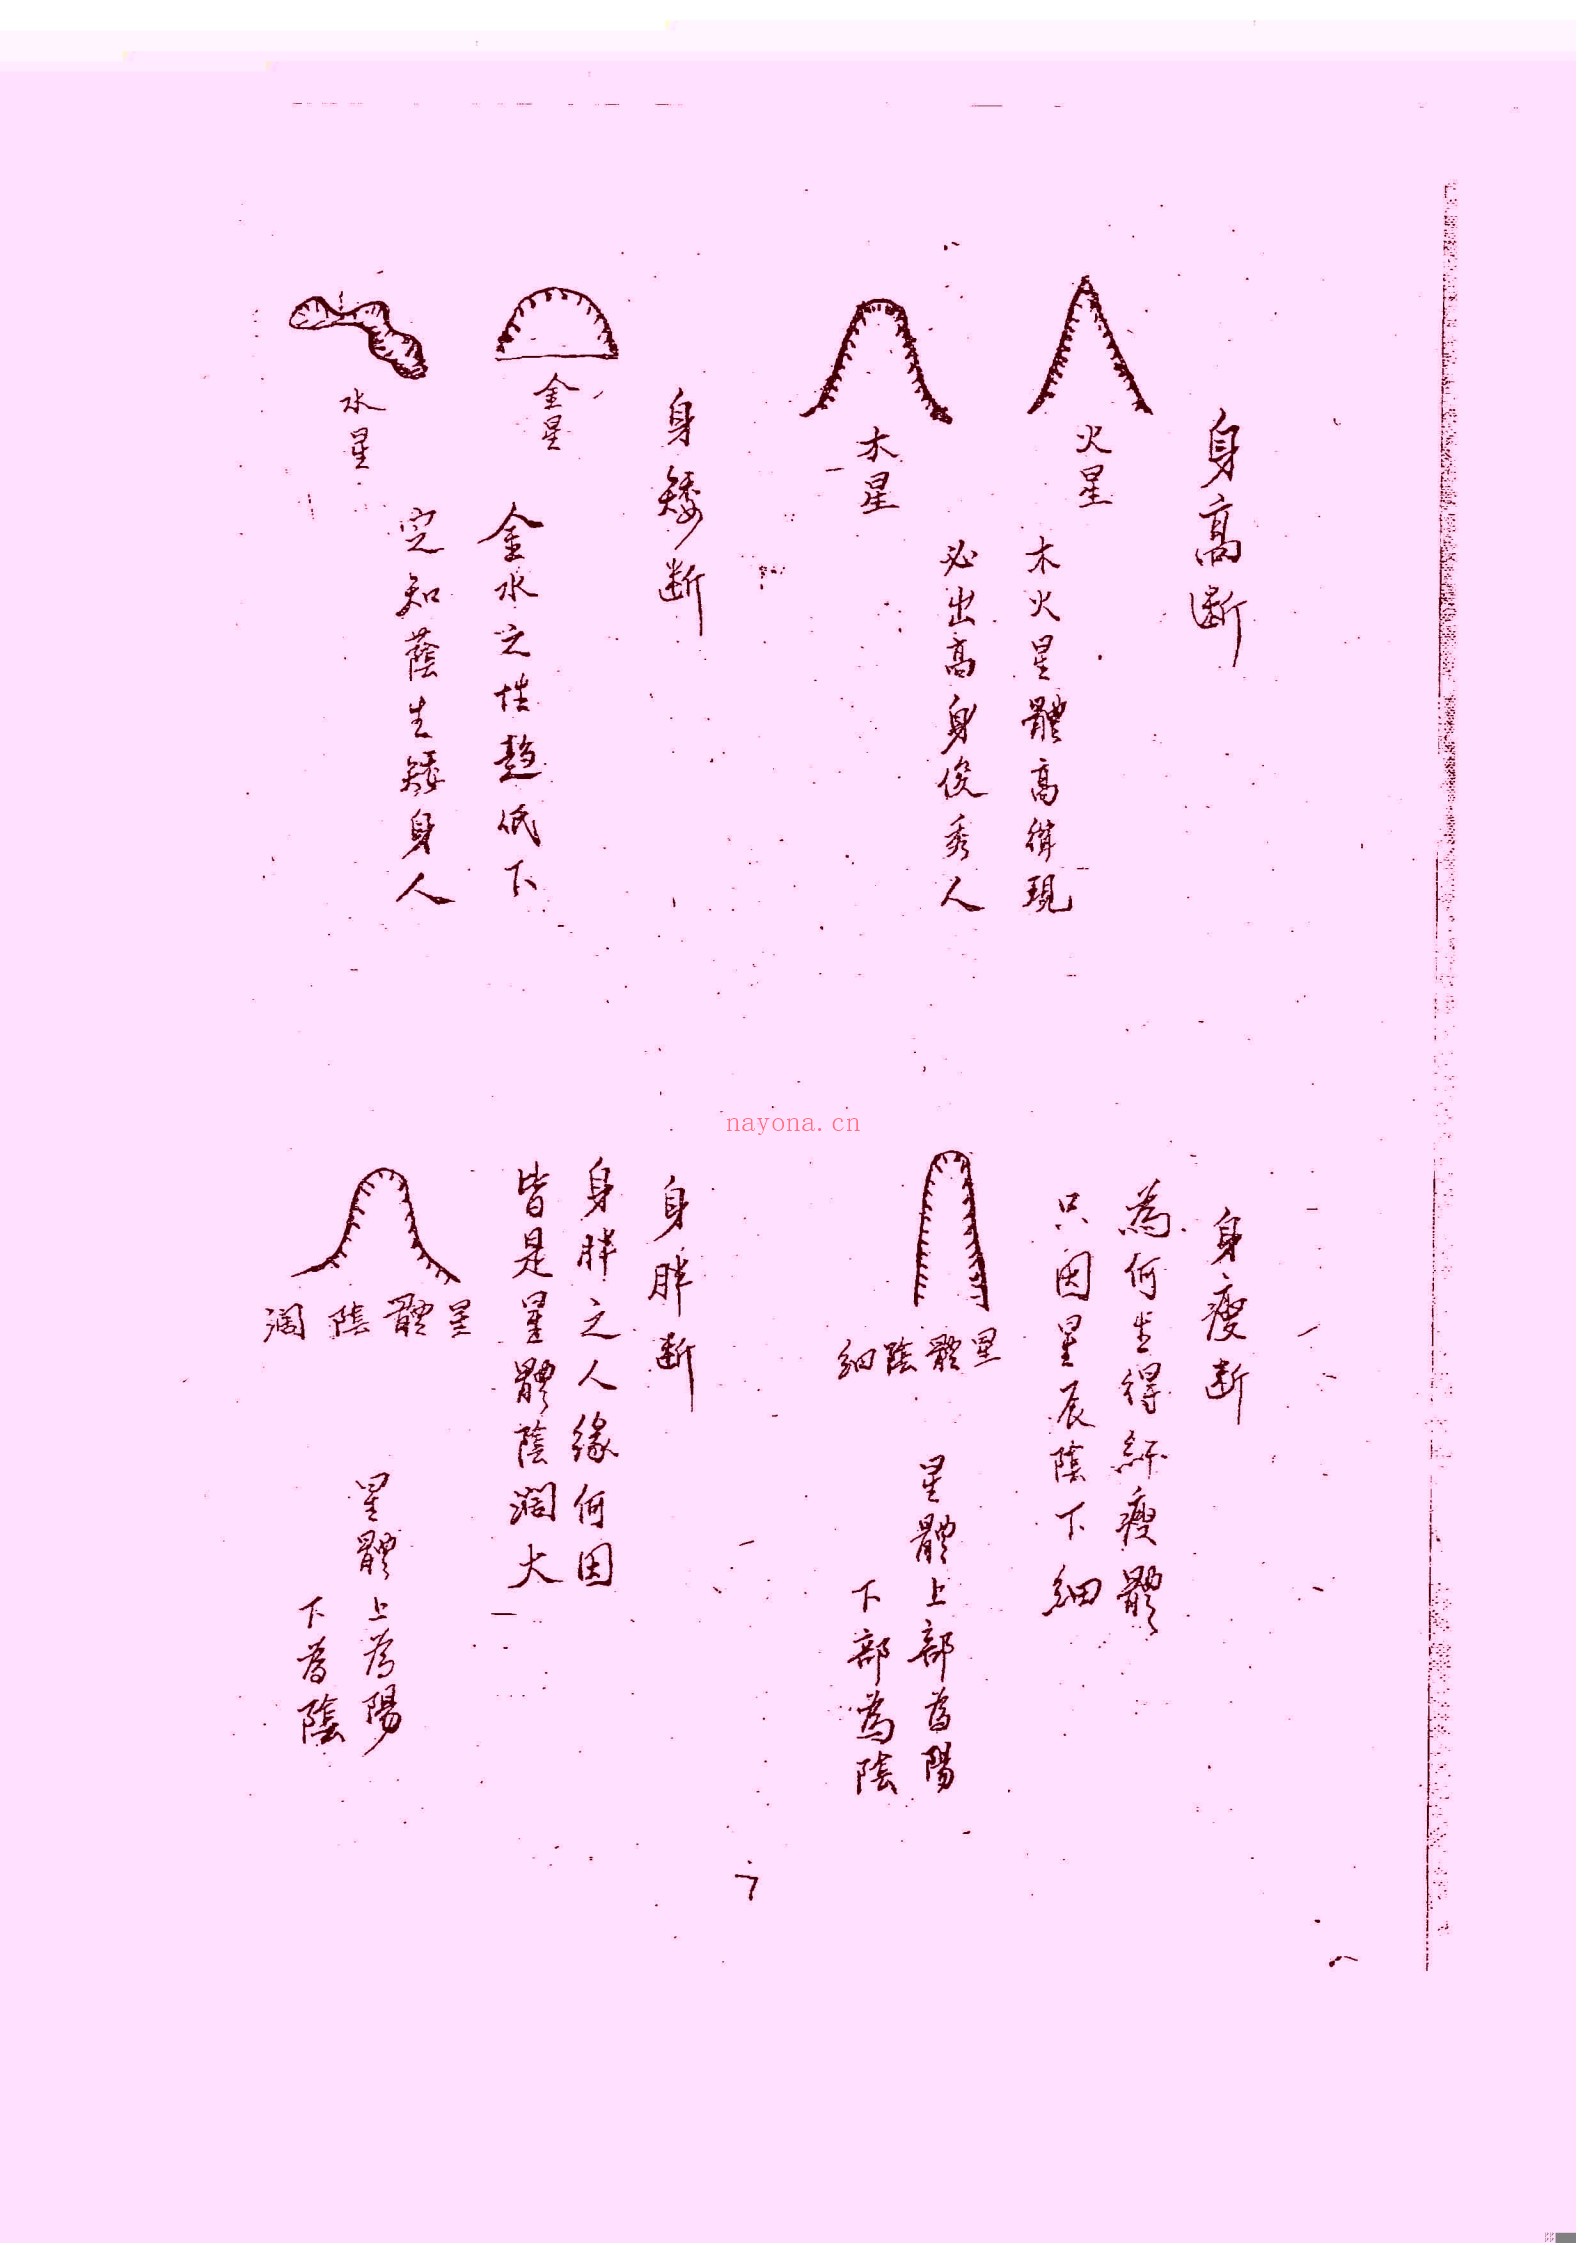 身高断
火星
木火星體高得現
必出高身俊秀人
木星
身矮断
金星
金水之性趋低下
水星
定知蔭生矮身人
身瘦断
為何生得纤瘦體
只因星辰陰下細
星體陰細
星體上部為陽
下部為陰
身胖断
身胖之人缘何因
皆是星體陰濶大
星體陰濶
星體上為陽
下為陰
nayona.cn